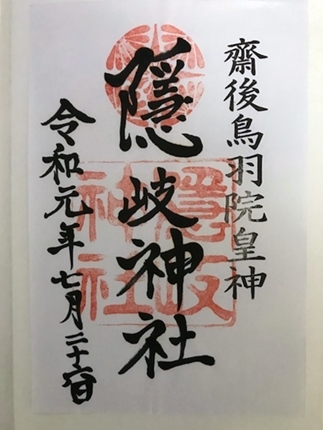 齋後鳥羽院皇神
隠岐神社
令和元年七月二十六日
隠岐
神社